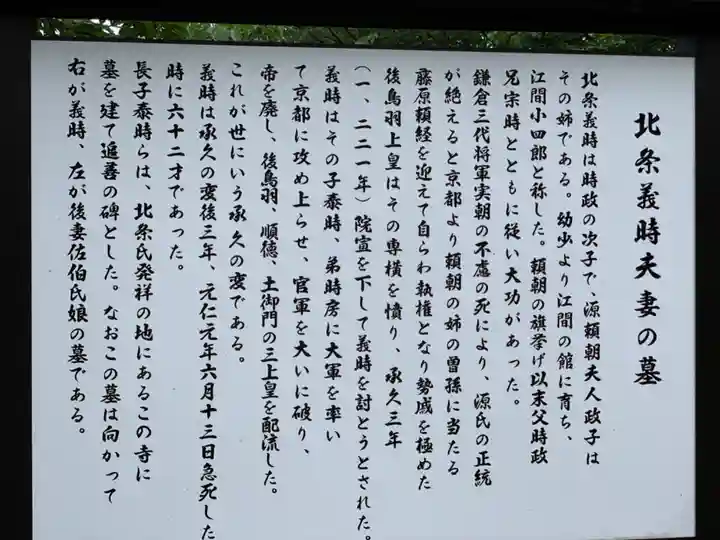 北条義時夫妻の墓
北条義時は時政の次子で、源頼朝夫人政子は
その姉である。幼少より江間の館に育ち、
江間小四郎と称した。頼朝の旗挙げ以来父時政
兄宗時とともに従い大功があった。
鎌倉三代将軍実朝の不慮の死により、源氏の正統
が絶えると京都より頼朝の姉の曽孫に当たる
藤原頼経を迎えて自らわ執権となり勢威を極めた
後鳥羽上皇はその専横を憤り、承久三年
(一、二二一年)院宣を下して義時を討とうとされた。
義時はその子泰時、弟時房に大軍を率い
て京都に攻め上らせ、官軍を大いに破り、
帝を廃し、後鳥羽、順徳、土御門の三上皇を配流した。
これが世にいう承久の変である。
義時は承久の変後三年、元仁元年六月十三日急死した
時に六十二才であった。
長子泰時らは、北条氏発祥の地にあるこの寺に
墓を建て追善の碑とした。なおこの墓は向かって
右が義時、左が後妻佐伯氏娘の墓である。